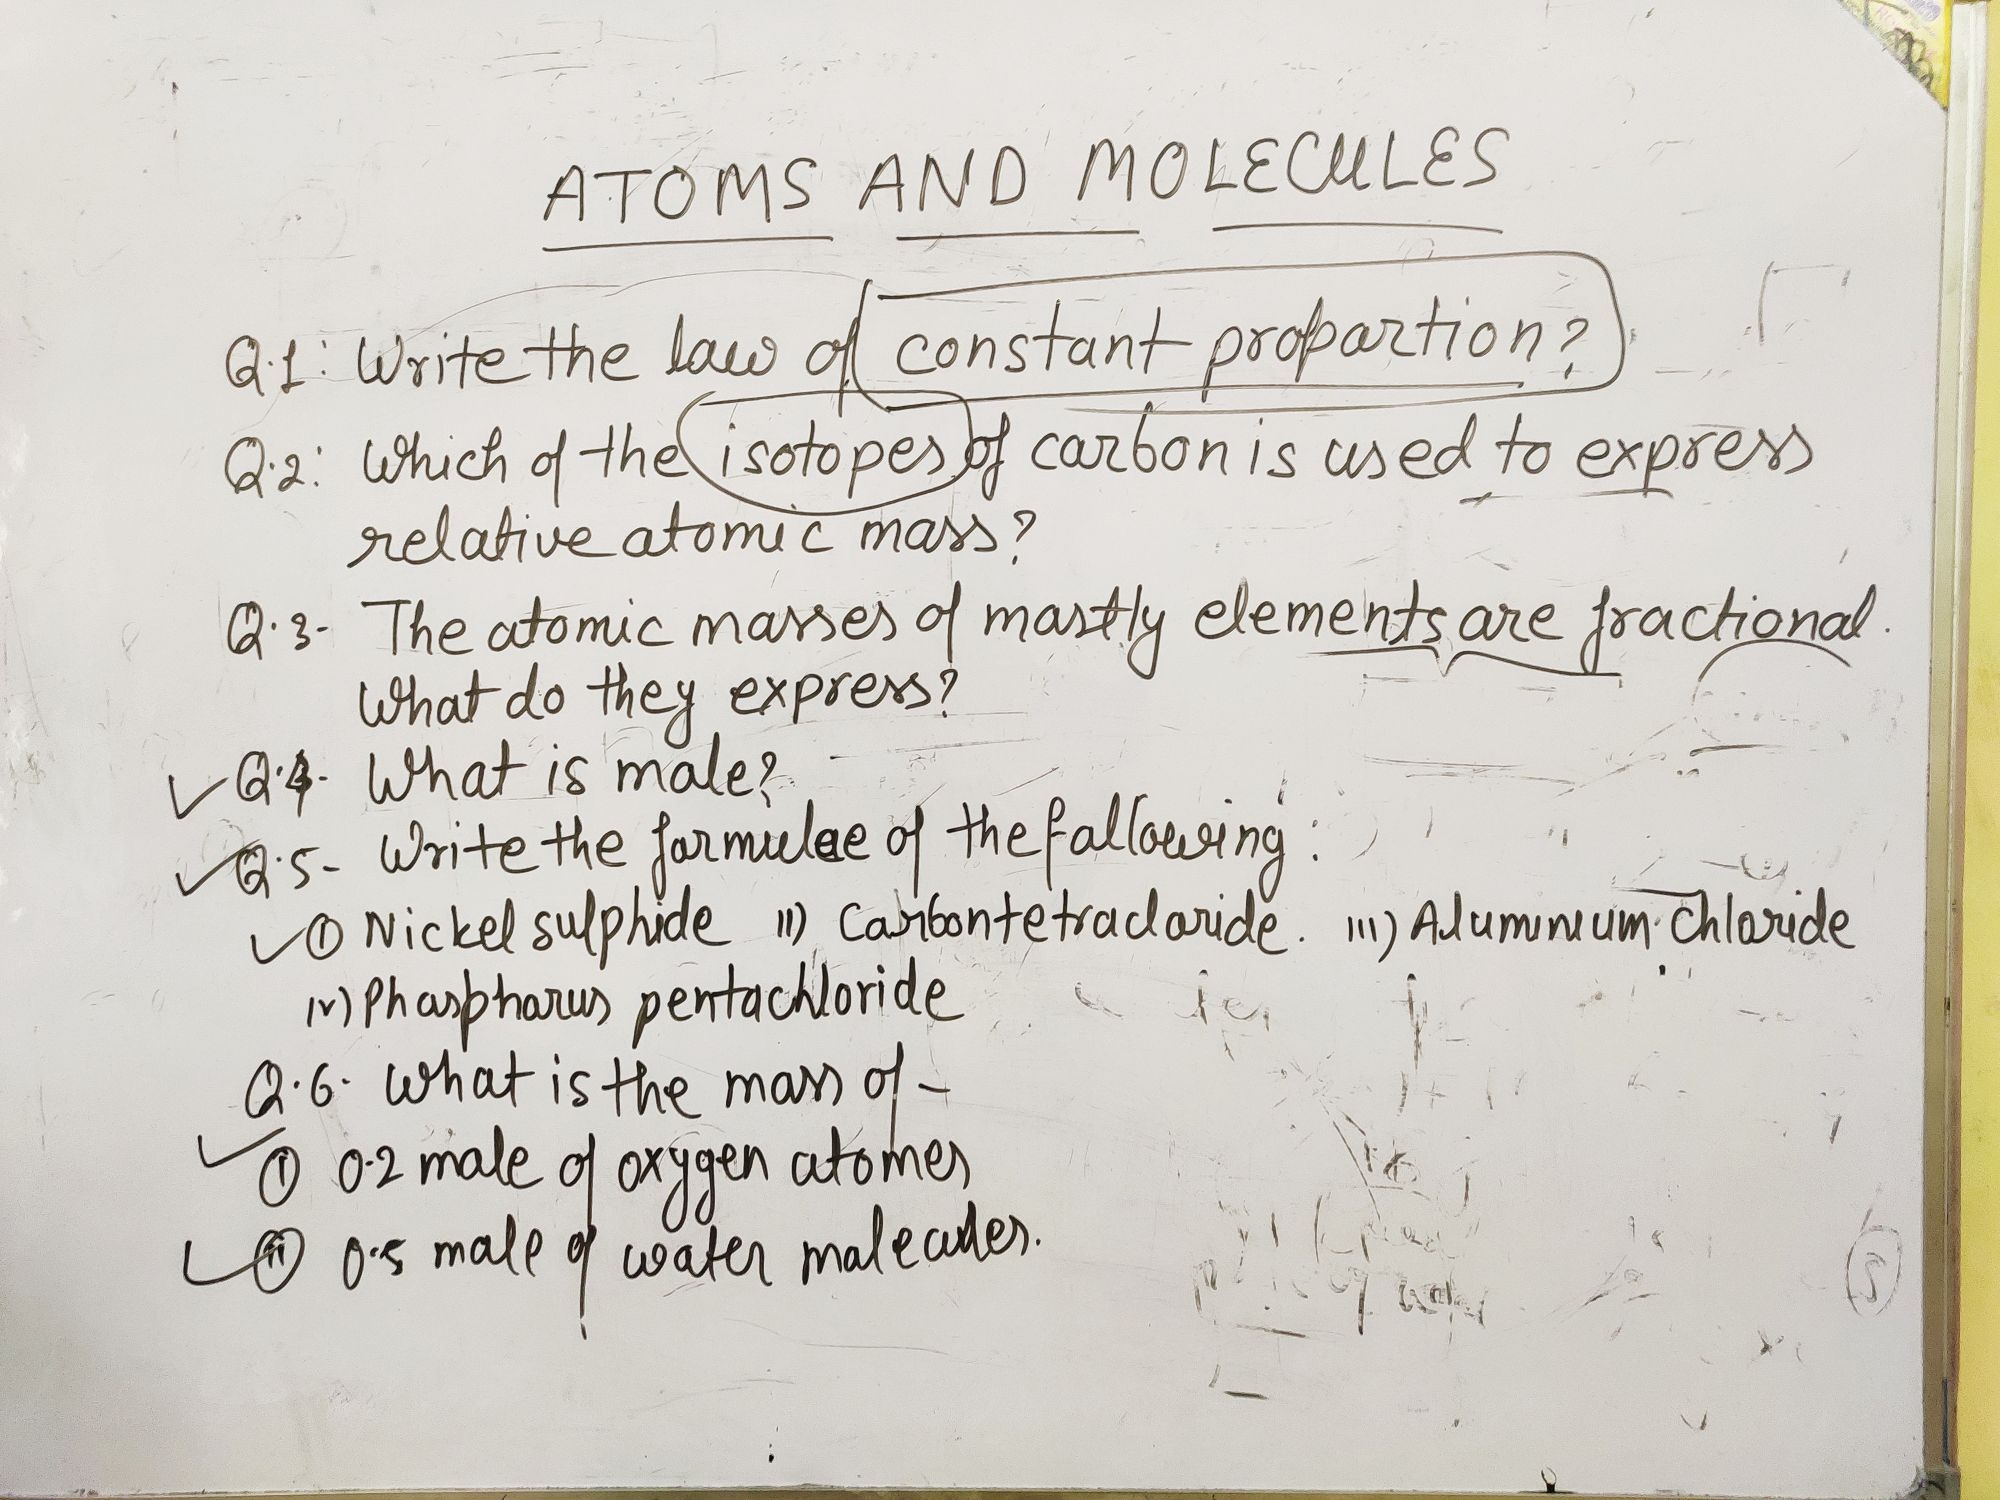 ATOMS AND MOLECULES
Q.1: Write the law of constant proportion?
Q.2: Which of the isotopes of carbon is used to express
relative atomic mass?
Q.3- The atomic masses of mostly elements are fractional.
What do they express?
Q.4- What is mole?
Q.5- Write the formulae of the following:
i) Nickel sulphide ii) Carbontetracloride. iii) Aluminium Chloride
iv) Phosphorus pentachloride
Q.6. What is the mass of -
i) 0.2 mole of oxygen atomes
ii) 0.5 mole of water molecules.
5